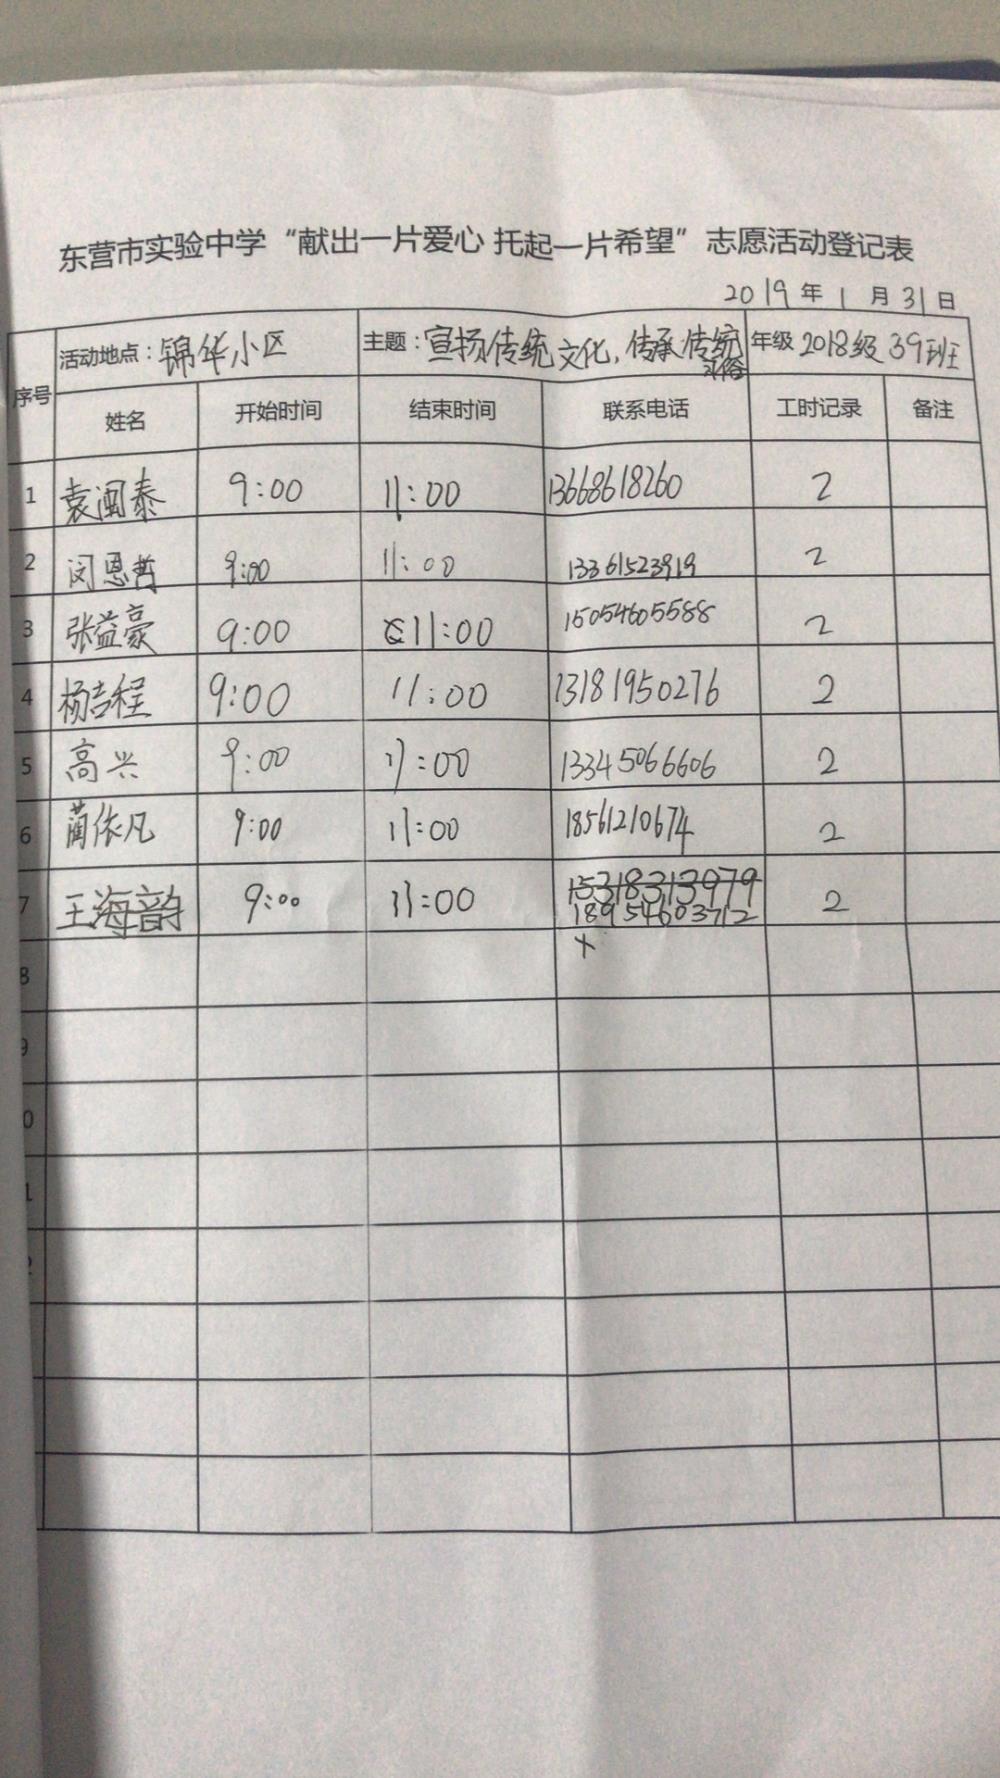 东营市实验中学“献出一片爱心 托起一片希望”志愿活动登记表
2019年1月31日
序号 活动地点：锦华小区 主题：宣扬传统文化，传承传统习俗 年级 2018级39班
姓名 开始时间 结束时间 联系电话 工时记录 备注
1 袁闽泰 9:00 11:00 13668618260 2
2 闵恩哲 9:00 11:00 13361523919 2
3 张益豪 9:00 11:00 15054605588 2
4 杨吉程 9:00 11:00 13181950276 2
5 高兴 9:00 11:00 13345066606 2
6 蔺依凡 9:00 11:00 18561210674 2
7 王海韵 9:00 11:00 15318313979 2
18954603712
8
9
0
1
2